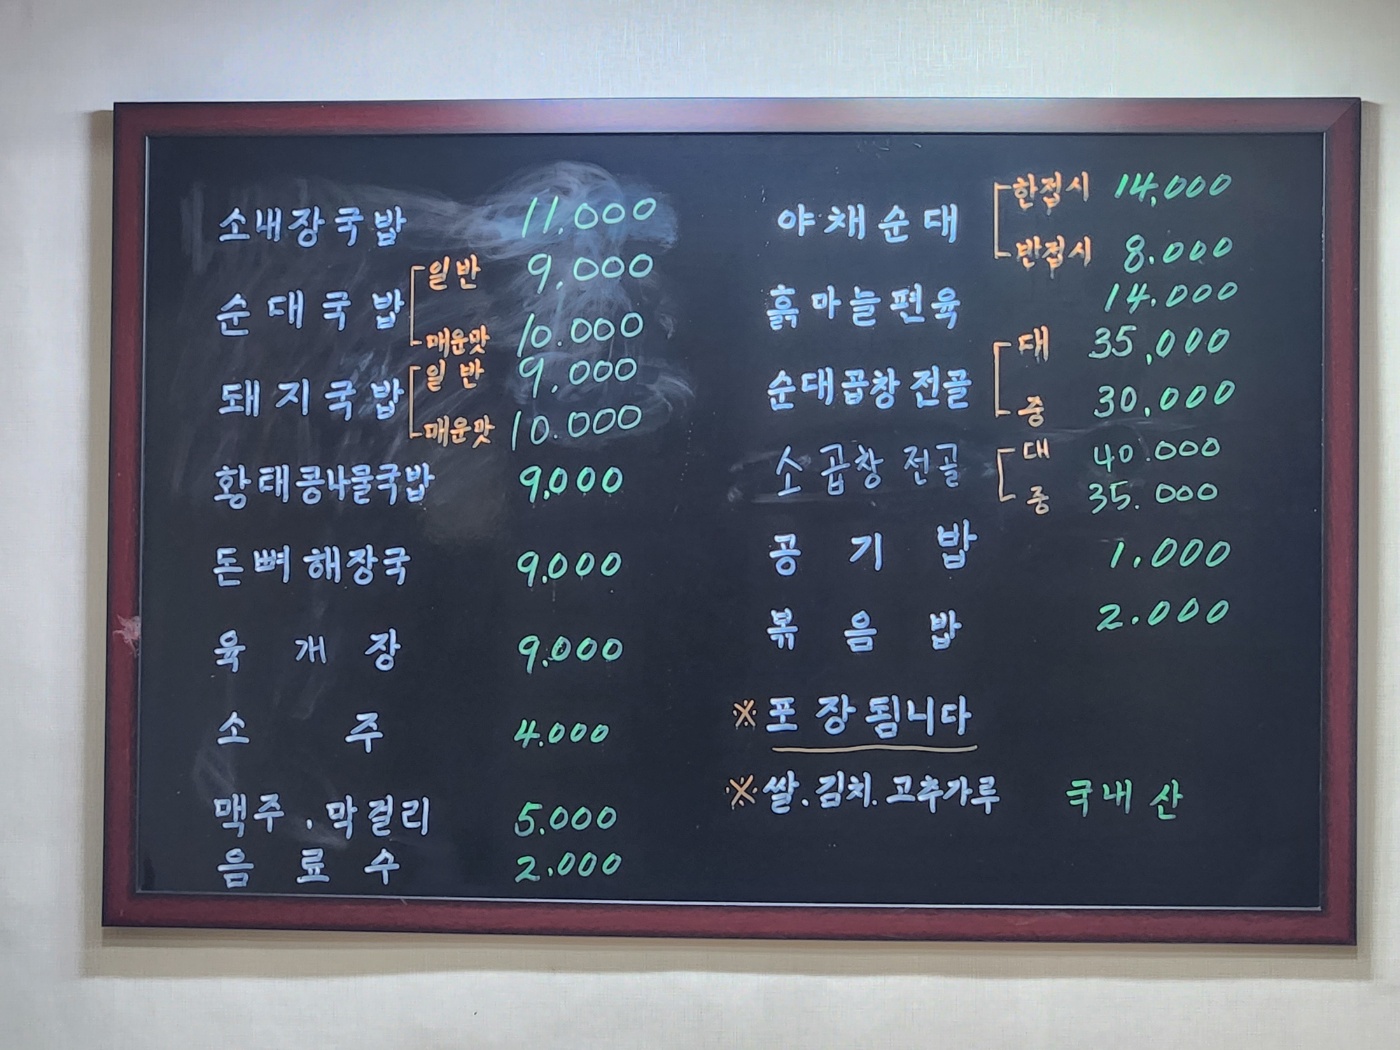 소내장국밥 11,000
순대국밥 일반 9,000
매운맛 10.000
돼지국밥 일반 9,000
매운맛 10.000
황태콩나물국밥 9,000
돈뼈해장국 9,000
육개장 9,000
소주 4.000
맥주.막걸리 5,000
음료수 2.000
야채순대 한접시 14,000
반접시 8.000
흙마늘편육 14.000
순대곱창전골 대 35,000
중 30,000
소곱창전골 대 40.000
중 35.000
공기밥 1.000
볶음밥 2.000
※포장됩니다
※쌀.김치.고추가루 국내산